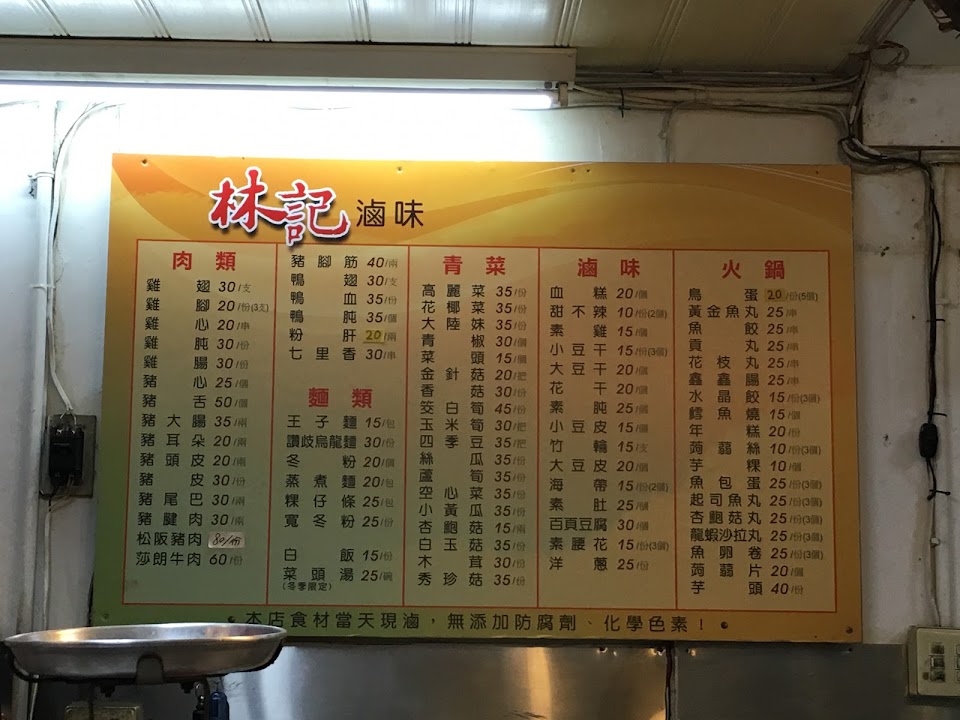 林記滷味
肉類
雞翅 30/支
雞腳 20/份(3支)
雞心 20/串
雞肫 30/份
雞腸 30/份
豬心 25/個
豬舌 50/個
豬大腸 35/兩
豬耳朵 20/兩
豬頭皮 20/兩
豬皮 30/份
豬尾巴 30/兩
豬腱肉 30/兩
松阪豬肉 80/份
莎朗牛肉 60/份
豬腳筋 40/兩
鴨翅 30/支
鴨血 35/份
鴨肫 35/個
粉肝 20/兩
七里香 30/串
麵類
王子麵 15/包
讚歧烏龍麵 30/份
冬粉 20/個
蒸煮麵 20/包
粿仔條 25/包
寬冬粉 25/份
白飯 15/份
菜頭湯 25/碗
(冬季限定)
青菜
高麗菜 35/份
花椰菜 35/份
大陸妹 35/份
青椒 30/個
菜頭 15/個
金針菇 20/把
香菇 30/份
筊白筍 45/份
玉米筍 30/把
四季豆 35/把
絲瓜 35/份
蘆筍 35/份
空心菜 35/份
小黃瓜 35/份
杏鮑菇 15/兩
白玉菇 35/份
木茸 30/份
秀珍菇 35/份
滷味
血糕 20/個
甜不辣 10/份(2個)
素雞 15/個
小豆干 15/份(3個)
大豆干 20/個
花干 20/個
素肫 25/個
小豆皮 15/個
竹輪 15/支
大豆皮 20/個
海帶 15/份(2個)
素肚 25/個
百頁豆腐 30/個
素腰花 15/份(3個)
洋蔥 25/份
火鍋
鳥蛋 20/份(5個)
黃金魚丸 25/串
魚餃 25/串
貢丸 25/串
花枝丸 25/串
鑫鑫腸 25/串
水晶餃 15/份(3個)
鱈魚燒 15/個
年糕 20/份
蒟蒻絲 10/份(3個)
芋粿 10/個
魚包蛋 25/份(3個)
起司魚丸 25/份(3個)
杏鮑菇丸 25/份(3個)
龍蝦沙拉丸 25/份(3個)
魚卵卷 25/份(3個)
蒟蒻片 20/個
芋頭 40/份
本店食材當天現滷，無添加防腐劑、化學色素！